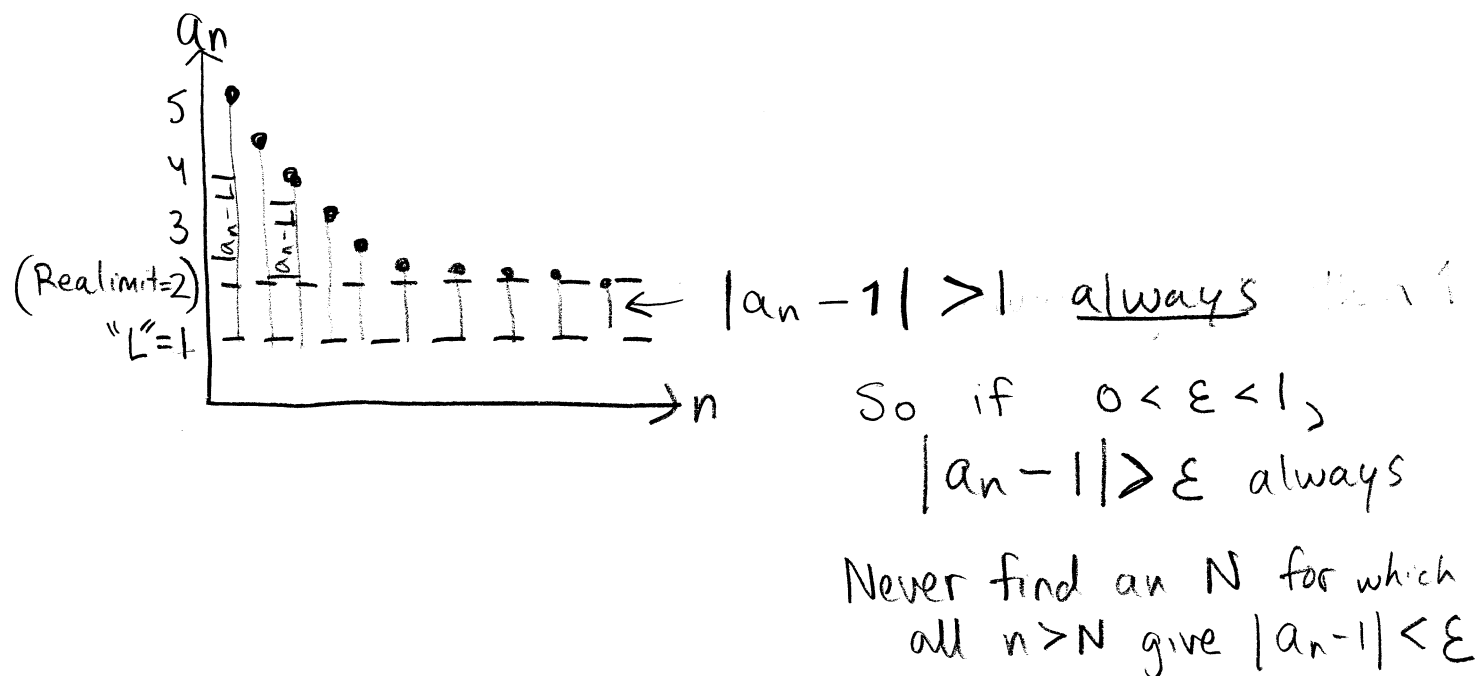 aₙ
5
4
3
|aₙ-L|
|aₙ-L|
(Realimit=2)
"L"=1
n
|aₙ-1| >1 always
So if 0<ε<1,
|aₙ-1|>ε always
Never find an N for which
all n>N give |aₙ-1|<ε